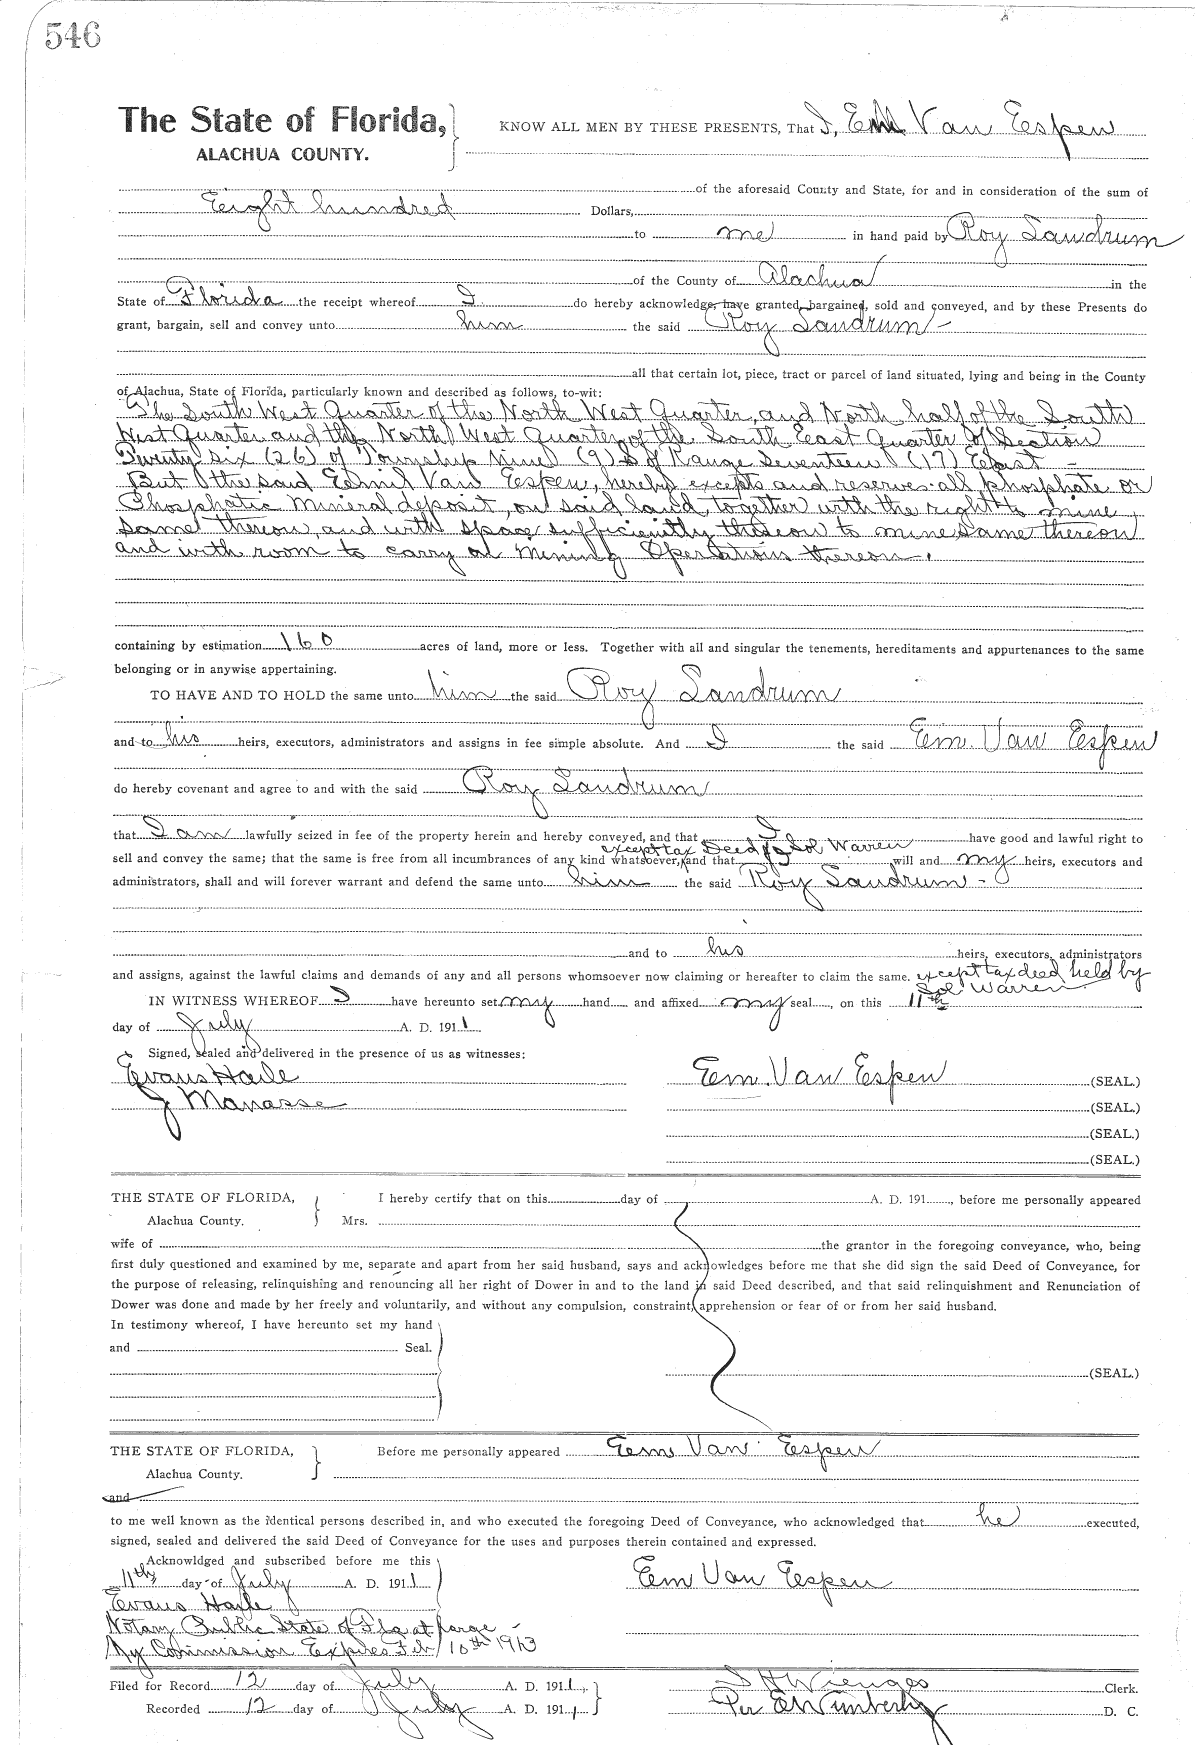 546
The State of Florida,
ALACHUA COUNTY.
KNOW ALL MEN BY THESE PRESENTS, That I, Em Van Espen
of the aforesaid County and State, for and in consideration of the sum of
Eight hundred Dollars,
to me in hand paid by Roy Landrum
of the County of Alachua in the
State of Florida the receipt whereof I do hereby acknowledge, have granted, bargained, sold and conveyed, and by these Presents do
grant, bargain, sell and convey unto him the said Roy Landrum -
all that certain lot, piece, tract or parcel of land situated, lying and being in the County
of Alachua, State of Florida, particularly known and described as follows, to-wit:
The South West Quarter of the North West Quarter, and North half of the South
West Quarter and the North West Quarter of the South East Quarter of Section
Twenty six (26) of Township Nine (9) S of Range Seventeen (17) East -
But I the said Edmil Van Espen, hereby excepts and reserves all phosphate or
Phosphatic Mineral deposit, on said land, together with the right to mine
same thereon, and with space sufficiently thereon to mine same thereon
and with room to carry on Mining Operations thereon.
containing by estimation 160 acres of land, more or less. Together with all and singular the tenements, hereditaments and appurtenances to the same
belonging or in anywise appertaining.
TO HAVE AND TO HOLD the same unto him the said Roy Landrum
and to his heirs, executors, administrators and assigns in fee simple absolute. And I the said Em. Van Espen
do hereby covenant and agree to and with the said Roy Landrum
that I am lawfully seized in fee of the property herein and hereby conveyed, and that I have good and lawful right to
except tax Deed to Sol Warren
sell and convey the same; that the same is free from all incumbrances of any kind whatsoever, and that I will and my heirs, executors and
administrators, shall and will forever warrant and defend the same unto him the said Roy Landrum -
and to his heirs, executors, administrators
and assigns, against the lawful claims and demands of any and all persons whomsoever now claiming or hereafter to claim the same. except tax deed held by
Sol Warren
IN WITNESS WHEREOF I have hereunto set my hand and affixed my seal, on this 11th
day of July A. D. 1911.
Signed, sealed and delivered in the presence of us as witnesses:
Evans Haile Em. Van Espen (SEAL.)
J Manasse (SEAL.)
(SEAL.)
(SEAL.)
THE STATE OF FLORIDA, I hereby certify that on this day of A. D. 191 , before me personally appeared
Alachua County. Mrs.
wife of the grantor in the foregoing conveyance, who, being
first duly questioned and examined by me, separate and apart from her said husband, says and acknowledges before me that she did sign the said Deed of Conveyance, for
the purpose of releasing, relinquishing and renouncing all her right of Dower in and to the land in said Deed described, and that said relinquishment and Renunciation of
Dower was done and made by her freely and voluntarily, and without any compulsion, constraint, apprehension or fear of or from her said husband.
In testimony whereof, I have hereunto set my hand
and Seal.
(SEAL.)
THE STATE OF FLORIDA, Before me personally appeared Em Van Espen
Alachua County.
and
to me well known as the identical persons described in, and who executed the foregoing Deed of Conveyance, who acknowledged that he executed,
signed, sealed and delivered the said Deed of Conveyance for the uses and purposes therein contained and expressed.
Acknowldged and subscribed before me this
11th day of July A. D. 1911 Em Van Espen
Evans Haile
Notary Public State of Fla at Large -
My Commission Expires Feb 10th 1913
Filed for Record 12 day of July A. D. 1911, S H Wienges Clerk.
Recorded 12 day of July A. D. 1911, Per E Wimberly D. C.